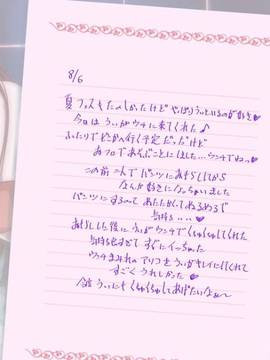 8/6
夏フェスもたのしかったけど やっぱりうぃといるのが好き♥
今日はうぃがウチに来てくれた♪
ふたりでどこかへ行く予定だったけど
おフロであそぶことにした…ウンチでねっ♥
この前二人でパンツにおもらししてから
なんか好きになっちゃいました
パンツにするのってあたたかくてぬるぬるで
気持ち‥‥♥
おもらしした後にうぃがウンチでくちゅくちゅしてくれた
気持ち良すぎてすぐにイっちゃった
ウンチまみれの をうぃがキレイにしてくれて
すごくうれしかった♥
今度うぃにもくちゅくちゅしてあげたいなぁ〜